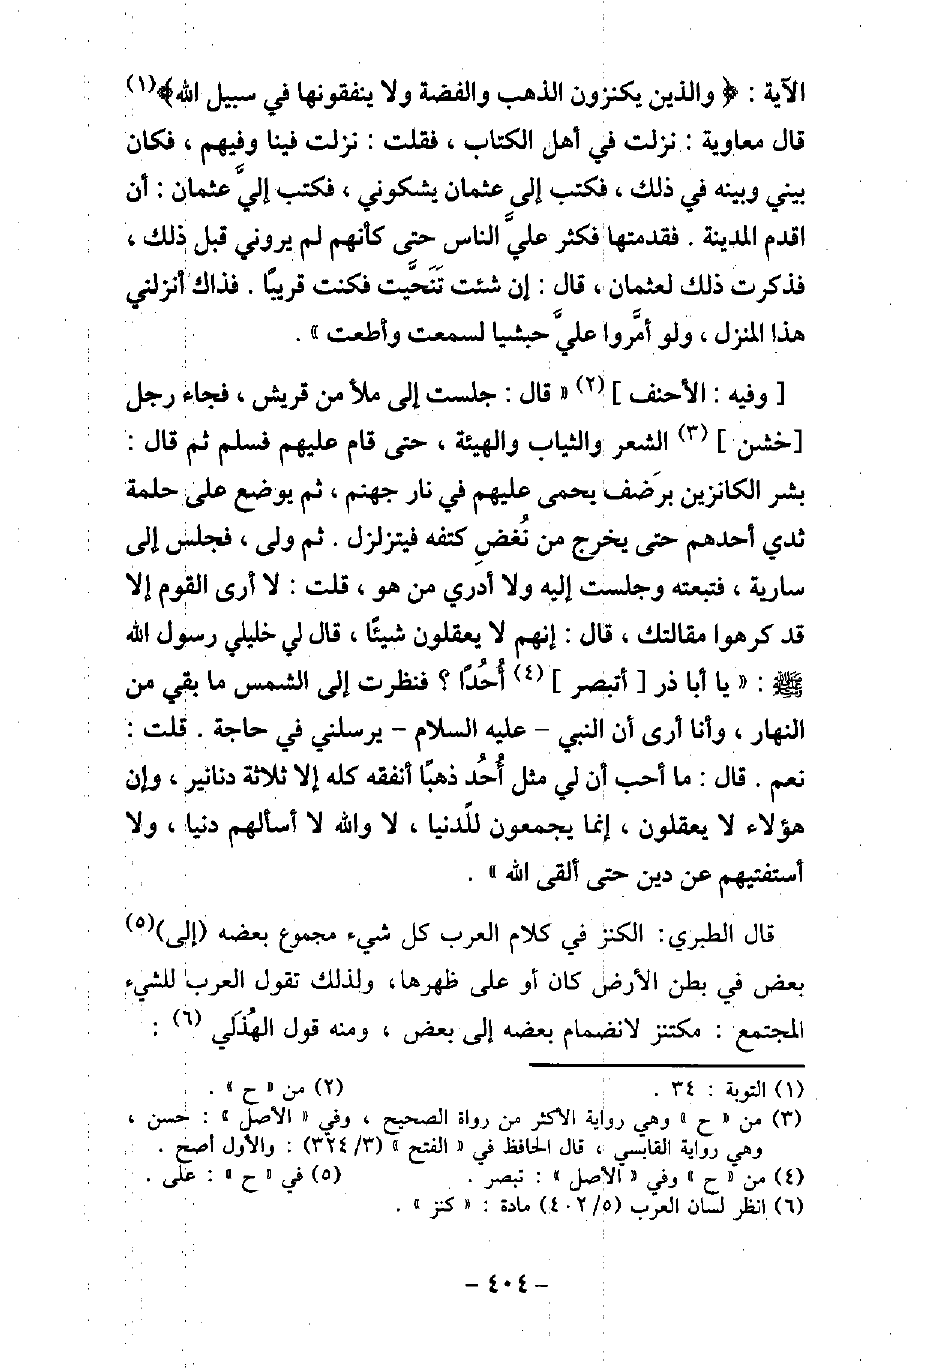 الآية : ﴿ والذين يكنزون الذهب والفضة ولا ينفقونها في سبيل الله﴾(١)
قال معاوية : نزلت في أهل الكتاب ، فقلت : نزلت فينا وفيهم ، فكان
بيني وبينه في ذلك ، فكتب إلى عثمان يشكوني ، فكتب إليَّ عثمان : أن
اقدم المدينة . فقدمتها فكثر عليَّ الناس حتى كأنهم لم يروني قبل ذلك ،
فذكرت ذلك لعثمان ، قال : إن شئت تَنَحَّيت فكنت قريبًا . فذاك أنزلني
هذا المنزل ، ولو أمَّروا عليَّ حبشيا لسمعت وأطعت » .
[ وفيه : الأحنف ] (٢) « قال : جلست إلى ملأ من قريش ، فجاء رجل
[خشن ] (٣) الشعر والثياب والهيئة ، حتى قام عليهم فسلم ثم قال :
بشر الكانزين برَضف يحمى عليهم في نار جهنم ، ثم يوضع على حلمة
ثدي أحدهم حتى يخرج من نُغضِ كتفه فيتزلزل . ثم ولى ، فجلس إلى
سارية ، فتبعته وجلست إليه ولا أدري من هو ، قلت : لا أرى القوم إلا
قد كرهوا مقالتك ، قال : إنهم لا يعقلون شيئًا ، قال لي خليلي رسول الله
ﷺ : « يا أبا ذر [ أتبصر ] (٤) أُحُدًا ؟ فنظرت إلى الشمس ما بقي من
النهار ، وأنا أرى أن النبي – عليه السلام – يرسلني في حاجة . قلت :
نعم . قال : ما أحب أن لي مثل أُحُد ذهبًا أنفقه كله إلا ثلاثة دنانير ، وإن
هؤلاء لا يعقلون ، إنما يجمعون للدنيا ، لا والله لا أسألهم دنيا ، ولا
أستفتيهم عن دين حتى ألقى الله » .
قال الطبري: الكنز في كلام العرب كل شيء مجموع بعضه (إلى)(٥)
بعض في بطن الأرض كان أو على ظهرها، ولذلك تقول العرب للشيء
المجتمع : مكتنز لانضمام بعضه إلى بعض ، ومنه قول الهُذَلي (٦) :
(١) التوبة : ٣٤ . (٢) من « ح » .
(٣) من « ح » وهي رواية الأكثر من رواة الصحيح ، وفي « الأصل » : حسن ،
وهي رواية القابسي ، قال الحافظ في « الفتح » (٣/ ٣٢٤) : والأول أصح .
(٤) من « ح » وفي « الأصل » : تبصر . (٥) في « ح » : على .
(٦) انظر لسان العرب (٥/ ٤٠٢) مادة : « كنز » .
– ٤٠٤ –